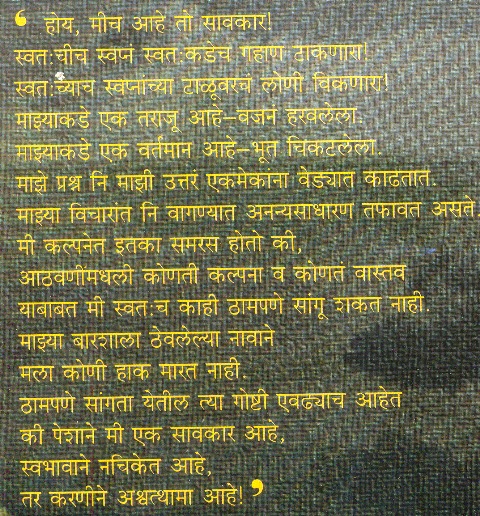 ‘ होय, मीच आहे तो सावकार!
स्वत:चीच स्वप्नं स्वत:कडेच गहाण टाकणारा!
स्वत:च्याच स्वप्नांच्या टाळूवरचं लोणी विकणारा!
माझ्याकडे एक तराजू आहे–वजनं हरवलेला.
माझ्याकडे एक वर्तमान आहे–भूत चिकटलेला.
माझे प्रश्न नि माझी उत्तरं एकमेकांना वेड्यात काढतात.
माझ्या विचारांत नि वागण्यात अनन्यसाधारण तफावत असते.
मी कल्पनेत इतका समरस होतो की,
आठवणींमधली कोणती कल्पना व कोणतं वास्तव
याबाबत मी स्वत:च काही ठामपणे सांगू शकत नाही.
माझ्या बारशाला ठेवलेल्या नावाने
मला कोणी हाक मारत नाही.
ठामपणे सांगता येतील त्या गोष्टी एवढ्याच आहेत
की पेशाने मी एक सावकार आहे,
स्वभावाने नचिकेत आहे,
तर करणीने अश्वत्थामा आहे! ’